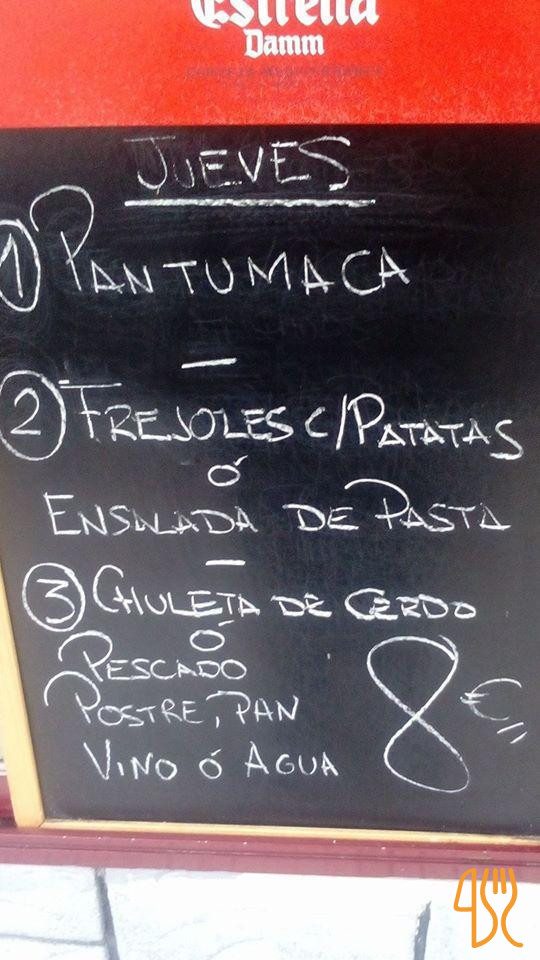 Estrella
Damm
JUEVES
1 PANTUMACA
—
2 FREJOLES C/PATATAS
Ó
ENSALADA DE PASTA
—
3 CHULETA DE CERDO
Ó
PESCADO
POSTRE, PAN
VINO Ó AGUA
8 €